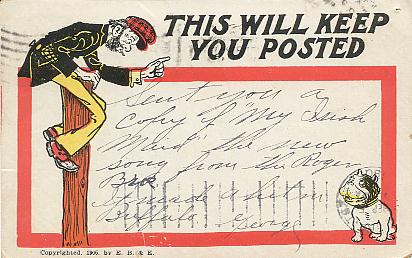 THIS WILL KEEP
YOU POSTED
Sent you a
copy of "My Irish
Maid" the new
song from the Roger
Bros
made a hit in
Buffalo George
Copyrighted, 1906, by E. B. & E.